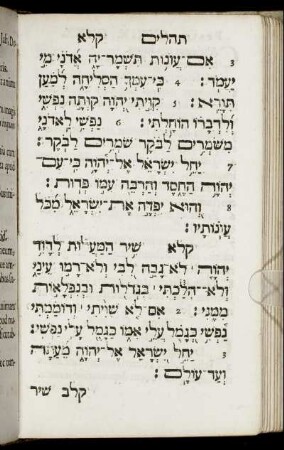 תהלים קלא
3 אִם־עֲוֹנוֹת תִּשְׁמָר־יָהּ אֲדֹנָי מִי
יַעֲמֹד׃ 4 כִּי־עִמְּךָ הַסְּלִיחָה לְמַעַן
תִּוָּרֵא׃ 5 קִוִּיתִי יְהוָה קִוְּתָה נַפְשִׁי
וְלִדְבָרוֹ הוֹחָלְתִּי׃ 6 נַפְשִׁי לַאדֹנָי
מִשֹּׁמְרִים לַבֹּקֶר שֹׁמְרִים לַבֹּקֶר׃
7 יַחֵל יִשְׂרָאֵל אֶל־יְהוָה כִּי־עִם־
יְהוָה הַחֶסֶד וְהַרְבֵּה עִמּוֹ פְדוּת׃
8 וְהוּא יִפְדֶּה אֶת־יִשְׂרָאֵל מִכֹּל
עֲוֹנוֹתָיו׃
קלא שִׁיר הַמַּעֲלוֹת לְדָוִד
יְהוָה לֹא־גָבַהּ לִבִּי וְלֹא־רָמוּ עֵינַי
וְלֹא־הִלַּכְתִּי בִּגְדֹלוֹת וּבְנִפְלָאוֹת
מִמֶּנִּי׃ 2 אִם לֹא שִׁוִּיתִי וְדוֹמַמְתִּי
נַפְשִׁי כְּגָמֻל עֲלֵי אִמּוֹ כַּגָּמֻל עָלַי נַפְשִׁי׃
3 יַחֵל יִשְׂרָאֵל אֶל־יְהוָה מֵעַתָּה
וְעַד עוֹלָם׃
קלב שיר